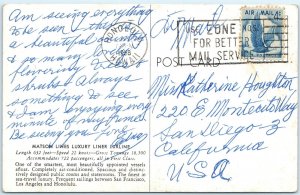 Am seeing everything
to be sun - they
a beautiful country
& so many lovely
flowering trees &
shrubs. Always
something to see
& am enjoying every
minute of my time.
Be seeing you fine
MATSON LINES LUXURY LINER LURLINE
Length 632 feet—Speed 22 knots—Gross Tonnage 18,500
Accommodates 722 passengers, all in First Class.
One of the smartest, most beautifully appointed vessels
afloat. Completely air-conditioned. Spacious and
designed public rooms and staterooms. The latest in
luxury. Frequent sailings between San Francisco,
Los Angeles and Honolulu.
HONOLULU
PM
USE ZONE NOS.
FOR BETTER
MAIL SERVICE
AIR MAIL
Air Mail
POST CARD
Miss Katherine Houghton
220 E Montecito Way
San Diego - 3
California
USA